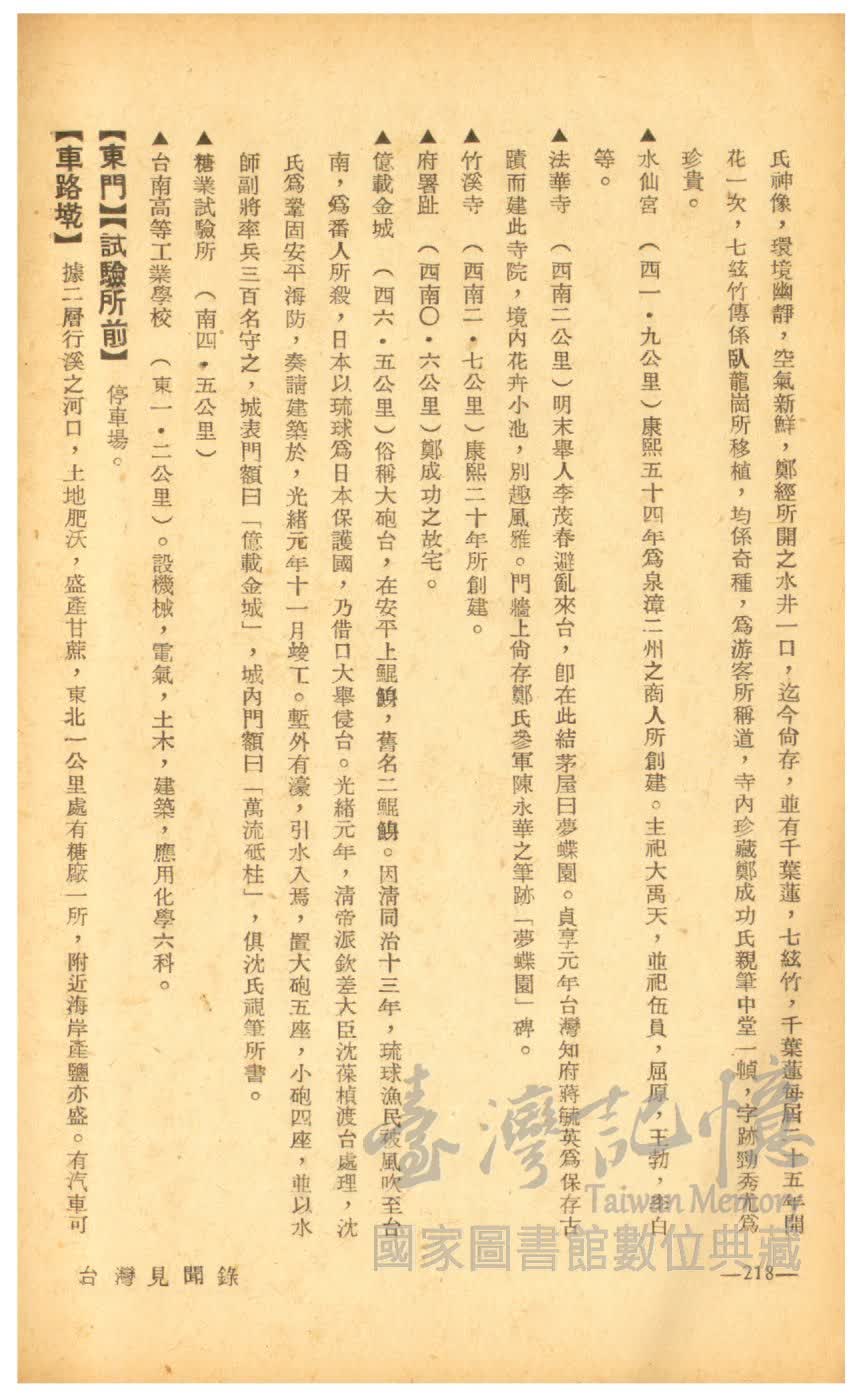 氏神像，環境幽靜，空氣新鮮，鄭經所開之水井一口，迄今尙存，並有千葉蓮，七絃竹，千葉蓮每屆三十五年開
花一次，七絃竹傳係臥龍崗所移植，均係奇種，爲游客所稱道，寺內珍藏鄭成功氏親筆中堂一幀，字跡勁秀尤爲
珍貴。
▲水仙宮　（西一・九公里）康熙五十四年爲泉漳二州之商人所創建。主祀大禹天，並祀伍員，屈原，王勃，李白
等。
▲法華寺　（西南二公里）明末舉人李茂春避亂來台，卽在此結茅屋曰夢蝶園。貞享元年台灣知府蔣毓英爲保存古
蹟而建此寺院，境內花卉小池，別趣風雅。門牆上尙存鄭氏參軍陳永華之筆跡「夢蝶園」碑。
▲竹溪寺　（西南二・七公里）康熙二十年所創建。
▲府署趾　（西南〇・六公里）鄭成功之故宅。
▲億載金城　（西六・五公里）俗稱大砲台，在安平上鯤鯓，舊名二鯤鯓。因淸同治十三年，琉球漁民被風吹至台
南，爲番人所殺，日本以琉球爲日本保護國，乃借口大舉侵台。光緒元年，淸帝派欽差大臣沈葆楨渡台處理，沈
氏爲鞏固安平海防，奏請建築於，光緒元年十一月竣工。塹外有濠，引水入焉，置大砲五座，小砲四座，並以水
師副將率兵三百名守之，城表門額曰「億載金城」，城內門額曰「萬流砥柱」，俱沈氏視筆所書。
▲糖業試驗所　（南四・五公里）
▲台南高等工業學校　（東一・二公里）。設機械，電氣，土木，建築，應用化學六科。
【東門】【試驗所前】　停車場。
【車路墘】　據二層行溪之河口，土地肥沃，盛產甘蔗，東北一公里處有糖廠一所，附近海岸產鹽亦盛。有汽車可
—218—
台灣見聞錄
臺灣記憶
Taiwan Memory
國家圖書館數位典藏